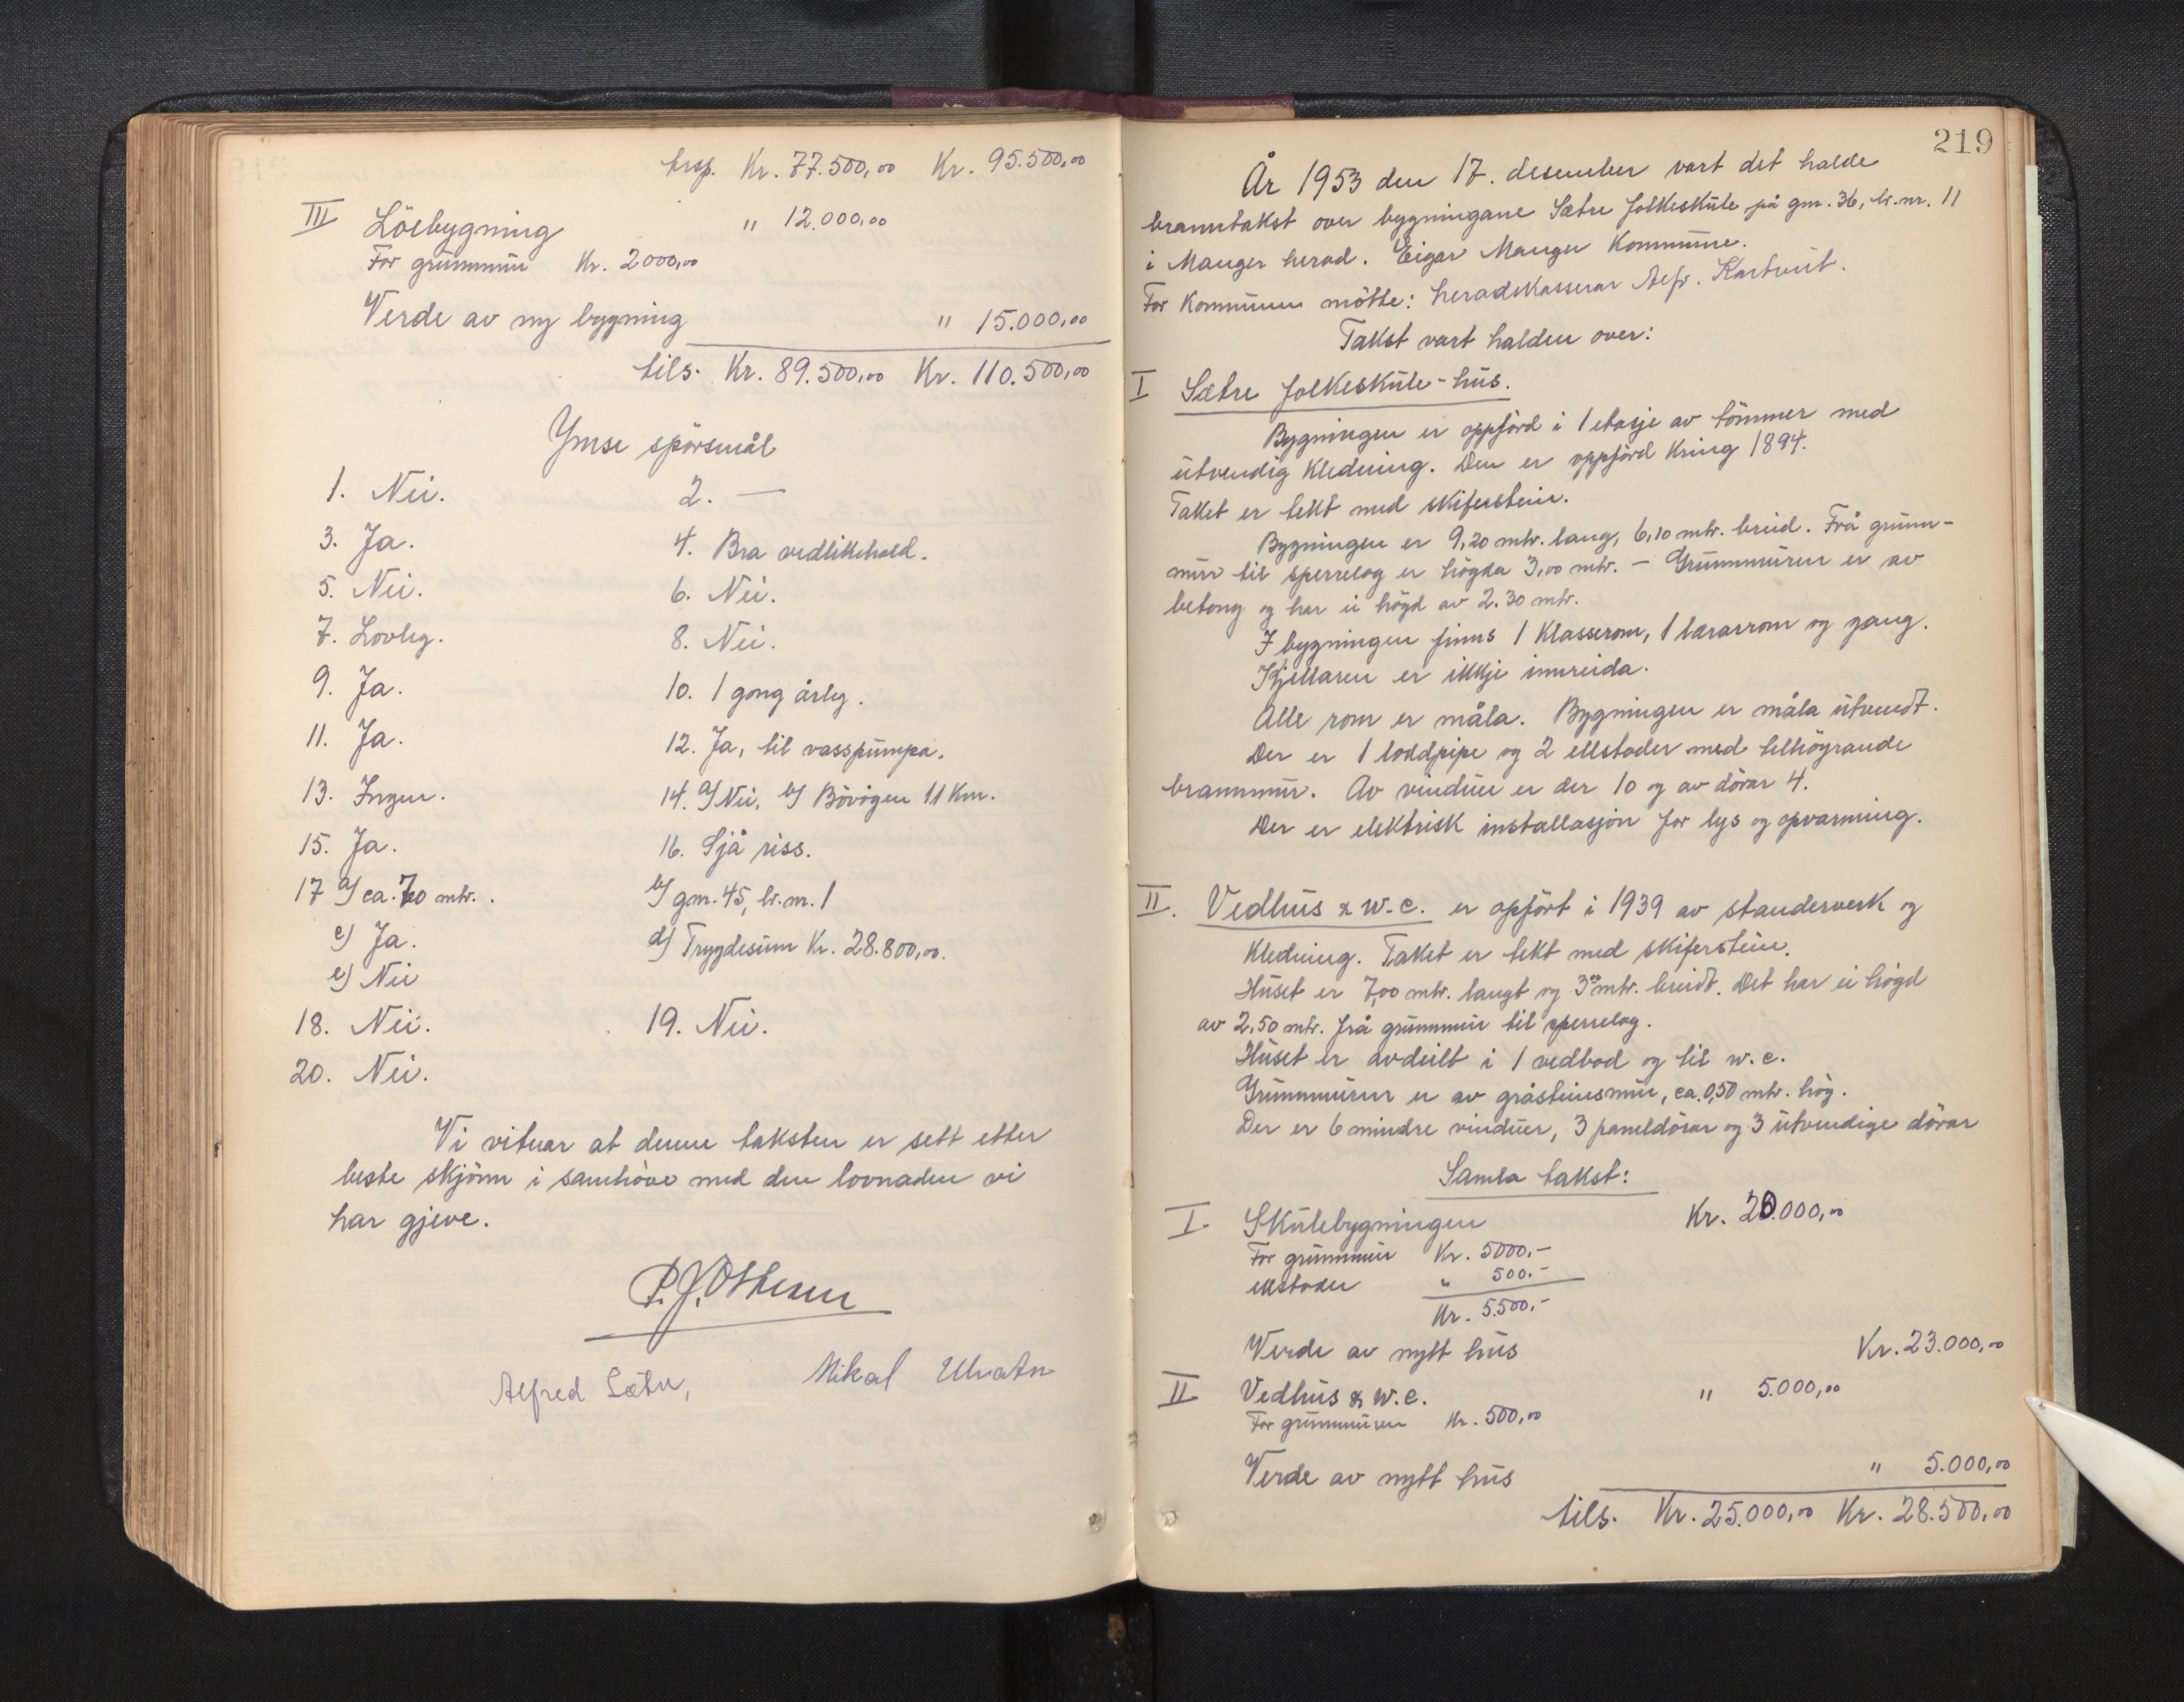 trsp. Kr. 77.500,00 Kr. 95.500,00
III Löebygning " 12.000,00
For grunnmur Kr. 2000,00
Verde av ny bygning " 15.000,00
tils. Kr. 89.500,00 Kr. 110.500,00
Ymse spörsmål
1. Nei. 2. —
3. Ja. 4. Bra vedlikehold.
5. Nei. 6. Nei.
7. Lovleg. 8. Nei.
9. Ja. 10. 1 gong årleg.
11. Ja. 12. Ja, til vasspumpa.
13. Ingen. 14. a/ Nei, b/ Bövågen 11 Km.
15. Ja. 16. Sjå riss.
17 a/ ca. 70 mtr. b/ gnr. 45, br.nr. 1
c) Ja. d) Trygdesum Kr. 28.800,00.
e) Nei
18. Nei. 19. Nei.
20. Nei.
Vi vitnar at denne taksten er sett etter
beste skjönn i samhöve med den lovnaden vi
har gjeve.
Alfred Sætre, Mikal
219
År 1953 den 17. desember vart det halde
branntakst over bygningane Sætre folkeskule på gnr. 36, br.nr. 11
i Manger herad. Eigar Manger Kommune.
For Kommunen mötte: heradskasserar Alfr. Kartveit.
Takst vart halden over:
I Sætre folkeskule-hus.
Bygningen er oppförd i 1 etasje av tömmer med
utvendig Kledning. Den er oppförd Kring 1894.
Taket er tekt med skiferstein.
Bygningen er 9,20 mtr. lang, 6,10 mtr. breid. Frå grunn-
mur til sperrelag er högda 3,00 mtr. — Grunnmuren er av
betong og har ei högd av 2.30 mtr.
I bygningen finns 1 Klasserom, 1 lærarrom og gang.
Kjellaren er ikkje innreida.
Alle rom er måla. Bygningen er måla utvendt.
Der er 1 loddpipe og 2 ellstader med tilhöyrande
brannmur. Av vinduer er der 10 og av dörar 4.
Der er elektrisk installasjon for lys og opvarming.
II. Vedhus & w.c. er opfört i 1939 av standerverk og
Kledning. Taket er tekt med skiferstein.
Huset er 7,00 mtr. langt og 3,00 mtr. breidt. Det har ei högd
av 2,50 mtr. frå grunnmur til sperrelag.
Huset er avdeilt i 1 vedbod og til w.c.
Grunnmuren er av gråsteinsmur, ca. 0,50 mtr. hög.
Der er 6 mindre vinduer, 3 paneldörar og 3 utvendige dörar
Samla takst:
I Skulebygningen Kr. 20.000,00
For grunnmur Kr. 5000.-
ellstader " 500.-
Kr. 5.500.-
Verde av nytt hus Kr. 23.000,00
II Vedhus & w.c. " 5.000,00
For grunnmuren Kr. 500,00
Verde av nytt hus " 5.000,00
tils. Kr. 25.000,00 Kr. 28.500,00